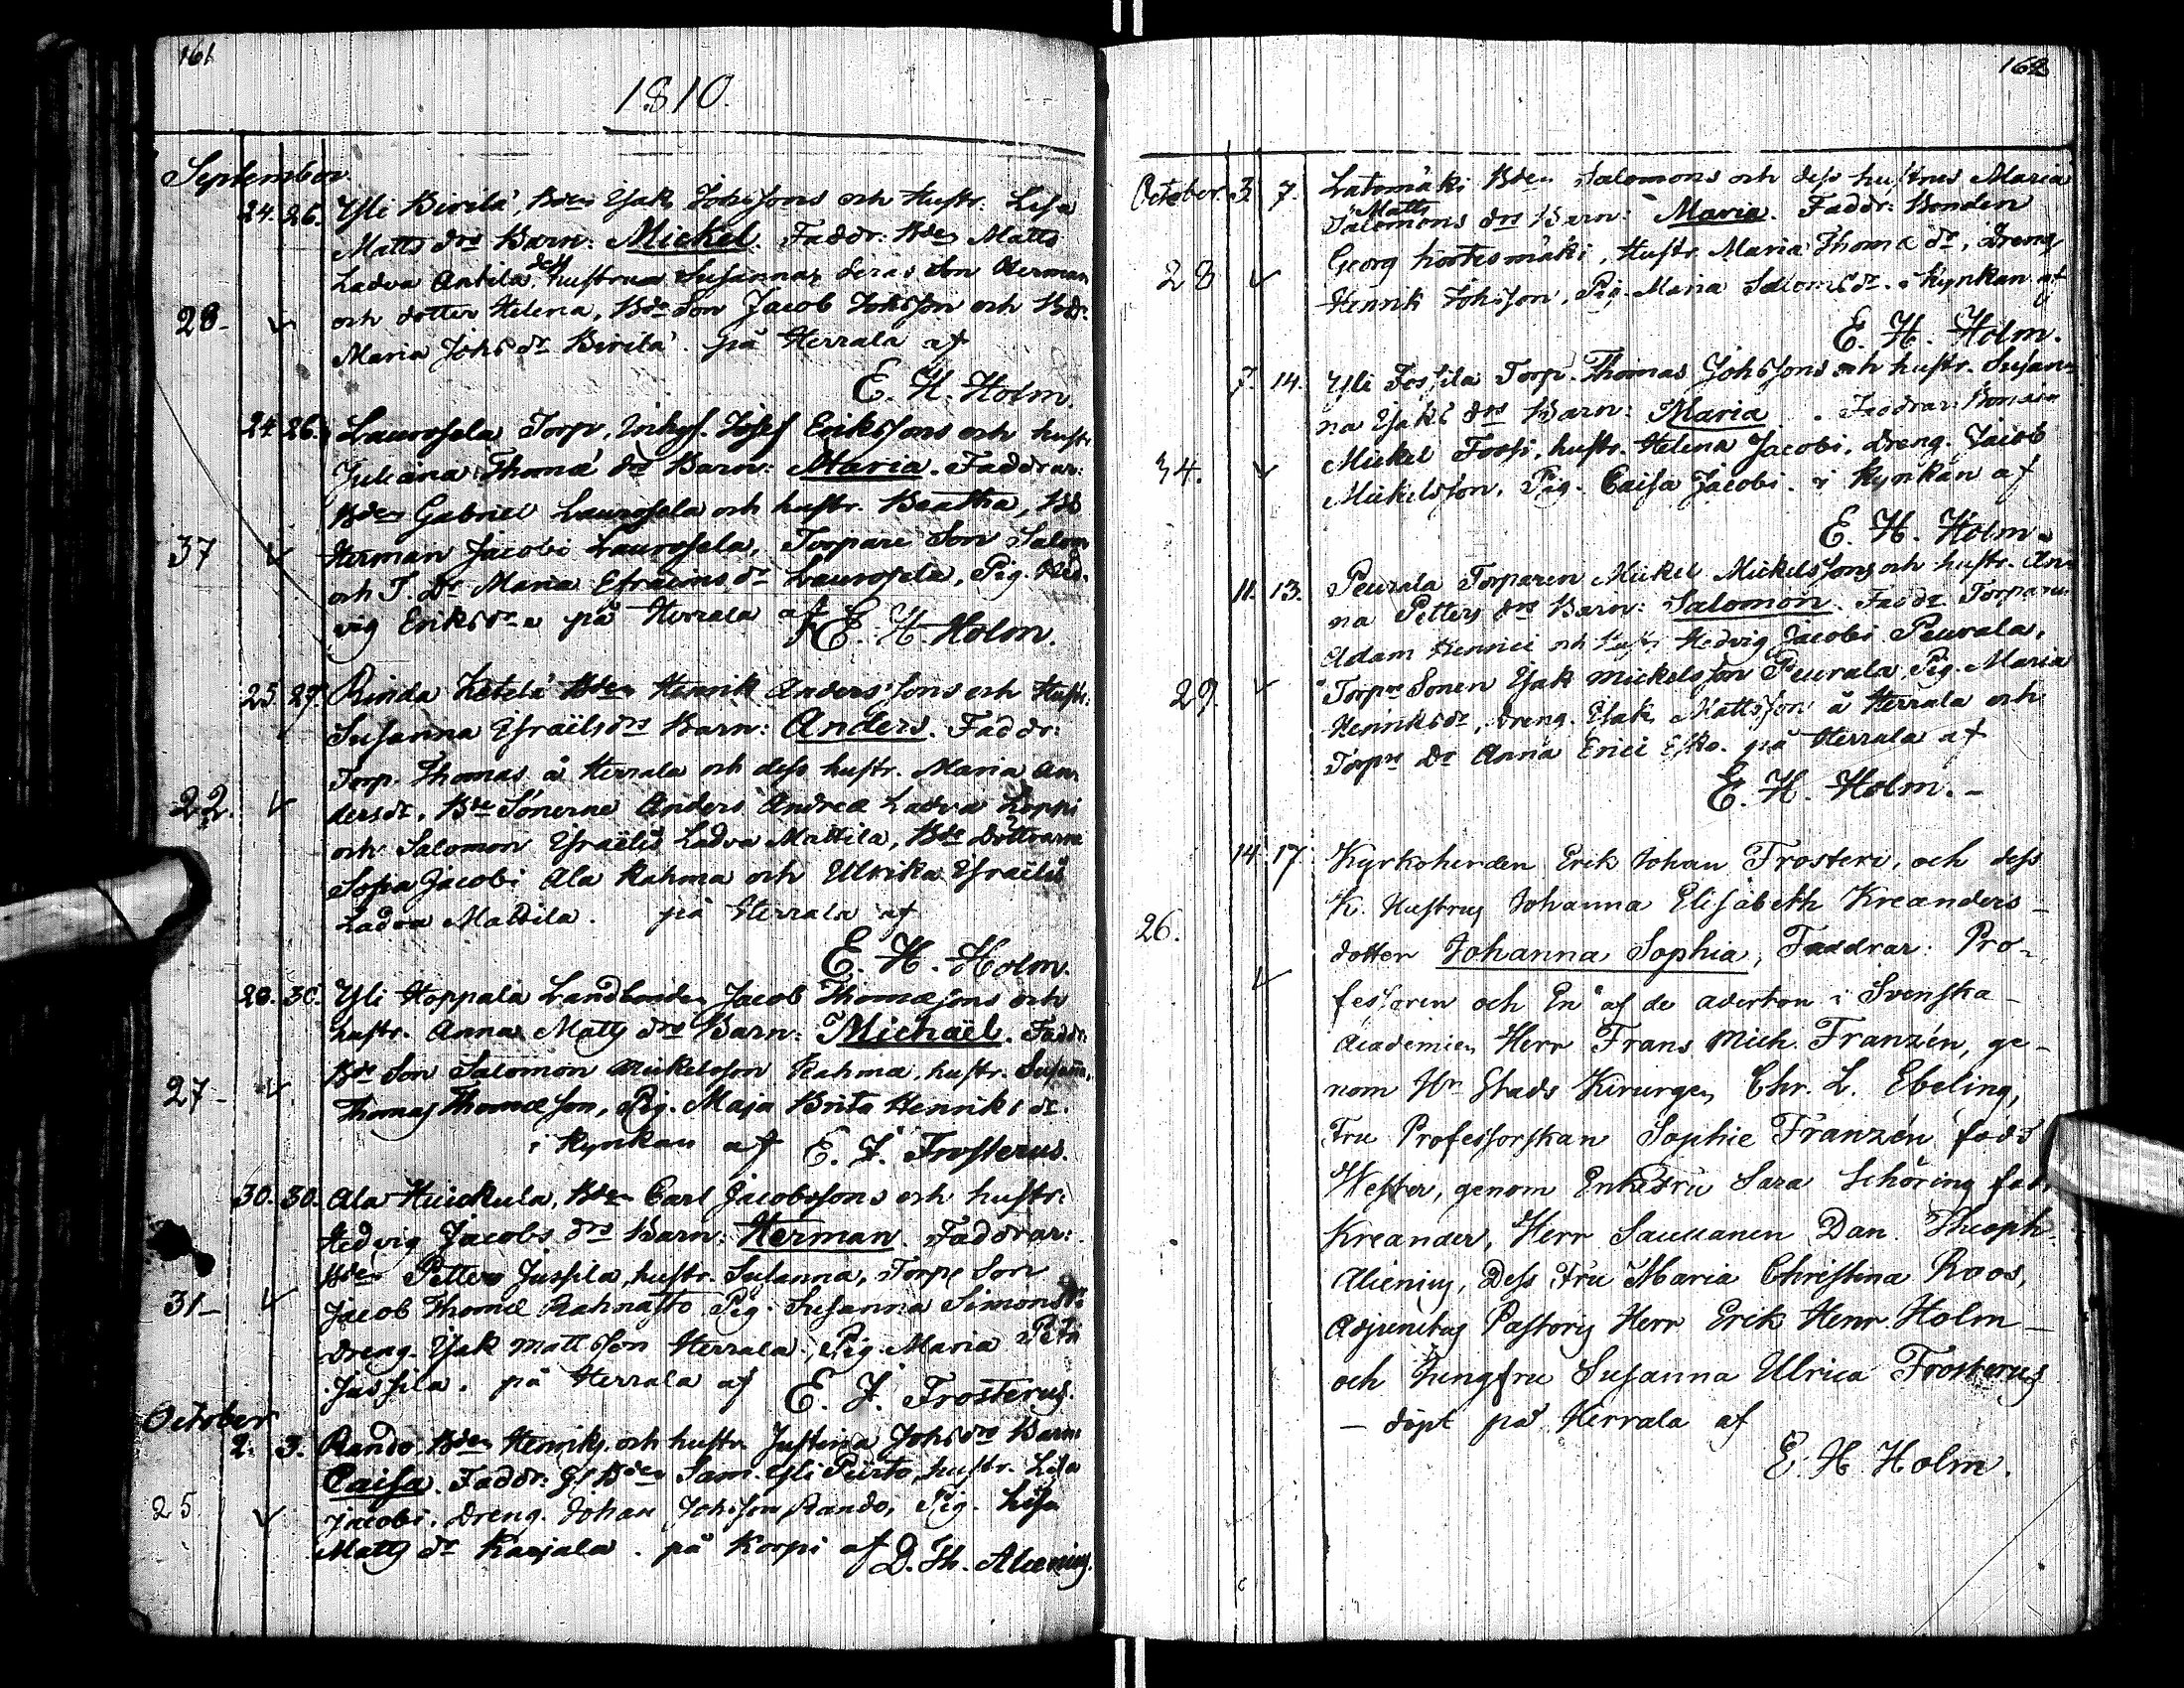 161
1810.
September.
24. 26. Yli Birilä, Bden Isak Johssons och Hustr. Lisa
Matts drs Barn: Mickel. Faddr: Bden Matts
Ladva Antila, dess hustru Susanna, deras Son Herman
28- och dotter Helena, Bde Son Jacob Johsson och Bdr.
Maria Johs dr Birilä. på Herrala af
E. H. Holm.
24 26. Laurosela Torp, Inhys. Josef Erikssons och hustr.
Juliana Thomæ drs Barn: Maria. Faddrar:
Bden Gabriel Laurosela och hustr. Beatha, Bd
37 Herman Jacobi Laurosela, Torpare Son Salom
och T. Dr Maria Efraims dr Laurosela, Pig. Hed-
vig Eriks dr på Herrala af
E. H. Holm.
25. 27. Rinda Ketelä Bden Henrik Anders'sons och Hustr.
Susanna Israëls drs Barn: Anders. Faddr:
Torp. Thomas å Herrala och dess hustr. Maria An-
22. dersdr, Bde Sönerne Anders Andreæ Ladva Loppi
och Salomon Israëlis Ladva Mattila, Bde Döttrarne
Sofia Jacobi Ala Rahma och Ulrika Israëlis
Ladva Mattila. på Herrala af
E. H. Holm.
28. 30. Yli Hoppala Landbonden Jacob Thomæsons och
hustr. Anna Matts drs Barn: Michaël. Faddr:
Bde Son Salomon Mickelsson Rahma, hustr. Susanna,
27- Thomas Thomæson, Pig. Maja Brita Henriks dr.
i Kynkan af E. J. Frosterus.
30. 30. Ala Huickula, Bden Carl Jacobssons och hustr:
Hedvig Jacobs drs Barn: Herman. Faddrar:
Bden Petter Jussila, hustr. Susanna, Torps Son
31- Jacob Thomæ Rahnasto Pig. Susanna Simons dr
dreng. Isak Mattsson Herrala, Pig. Maria Petri
Jussila. på Herrala af E. J. Frosterus.
October
2. 3. Rando Bden Henriks och hustr. Justina Johs drs Barn:
Caisa. Faddr: Bden Sam. Yli Pürto, hustr. Lisa
25. Jacobi, dreng. Johan Johsson Rando, Pig. Lisa
Matts dr Karjala. på Korpi af D. Th. Alcenius.
162
October. 3. 7. Latomäki Bden Salomons och dess hustrus Maria
Matts
Salomons drs Barn: Maria. Faddr: Bonden
28 Georg Kortesmäki, Hustr. Maria Thomæ dr, Dreng
Henrik Johsson, Pig. Maria Saloms dr. i Kynkan af
E. H. Holm.
7. 14. Yli Fossila Torp. Thomas Johssons och hustr. Susan-
na Isaks drs Barn: Maria. Faddrar: Bonden
34. Mickel Fossi, hustr. Helena Jacobi, dreng. Jacob
Mickelsson, Pig. Caisa Jacobi. i Kynkan af
E. H. Holm.
11. 13. Peurala Torparen Mickel Mickelssons och hustr. An-
na Petters drs Barn: Salomon. Faddr. Torparen
Adam Henrici och hustr. Hedvig Jacobi Peurala,
29. Torpre Sonen Isak Mickelsson Peurala, Pig. Maria
Henriks dr, dreng. Isak Mattsson å Herrala och
Torprs Dr Anna Erici Esko. på Herrala af
E. H. Holm.-
14. 17. Kyrkoherden Erik Johan Frosteri, och dess
26. K. Hustrus Johanna Elisabeth Kreanders-
dotter Johanna Sophia, Faddrar: Pro-
fessoren och En af de aderton i Svenska-
Academien Herr Frans Mich. Franzén, ge-
nom Hr Stads Kirurgen Chr. L. Ebeling,
Fru Professorskan Sophie Franzén född
Wester, genom Enkefru Sara Schöring föd.
Kreander, Herr Dan. Theoph.
Alcenius, Dess Fru Maria Christina Roos,
Adjunctus Pastoris Herr Erik Henr. Holm-
och Jungfru Susanna Ulrica Frosterus
- döpt på Herrala af
E. H. Holm.